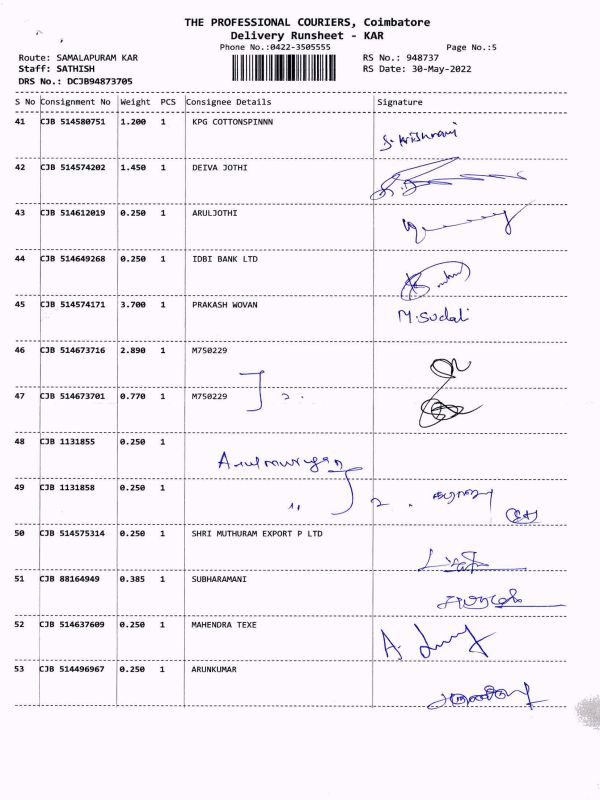 THE PROFESSIONAL COURIERS, Coimbatore
Delivery Runsheet - KAR
Phone No.:0422-3505555 Page No.:5
Route: SAMALAPURAM KAR RS No.: 948737
Staff: SATHISH RS Date: 30-May-2022
DRS No.: DCJB94873705
S No Consignment No Weight PCS Consignee Details Signature
41 CJB 514580751 1.200 1 KPG COTTONSPINNN
42 CJB 514574202 1.450 1 DEIVA JOTHI
43 CJB 514612019 0.250 1 ARULJOTHI
44 CJB 514649268 0.250 1 IDBI BANK LTD
45 CJB 514574171 3.700 1 PRAKASH WOVAN
M.Sudali
46 CJB 514673716 2.890 1 M750229
47 CJB 514673701 0.770 1 M750229
2.
48 CJB 1131855 0.250 1
49 CJB 1131858 0.250 1
2.
50 CJB 514575314 0.250 1 SHRI MUTHURAM EXPORT P LTD
51 CJB 88164949 0.385 1 SUBHARAMANI
52 CJB 514637609 0.250 1 MAHENDRA TEXE
53 CJB 514496967 0.250 1 ARUNKUMAR